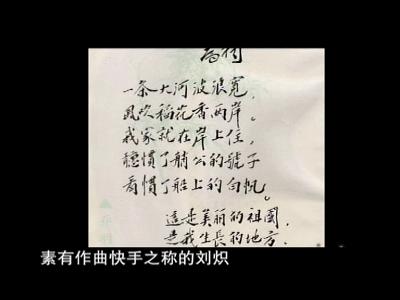 一条大河波浪宽，
风吹稻花香两岸。
我家就在岸上住，
聽慣了艄公的號子
看慣了船上的白帆。
這是美麗的祖國，
是我生長的地方，
素有作曲快手之称的刘炽